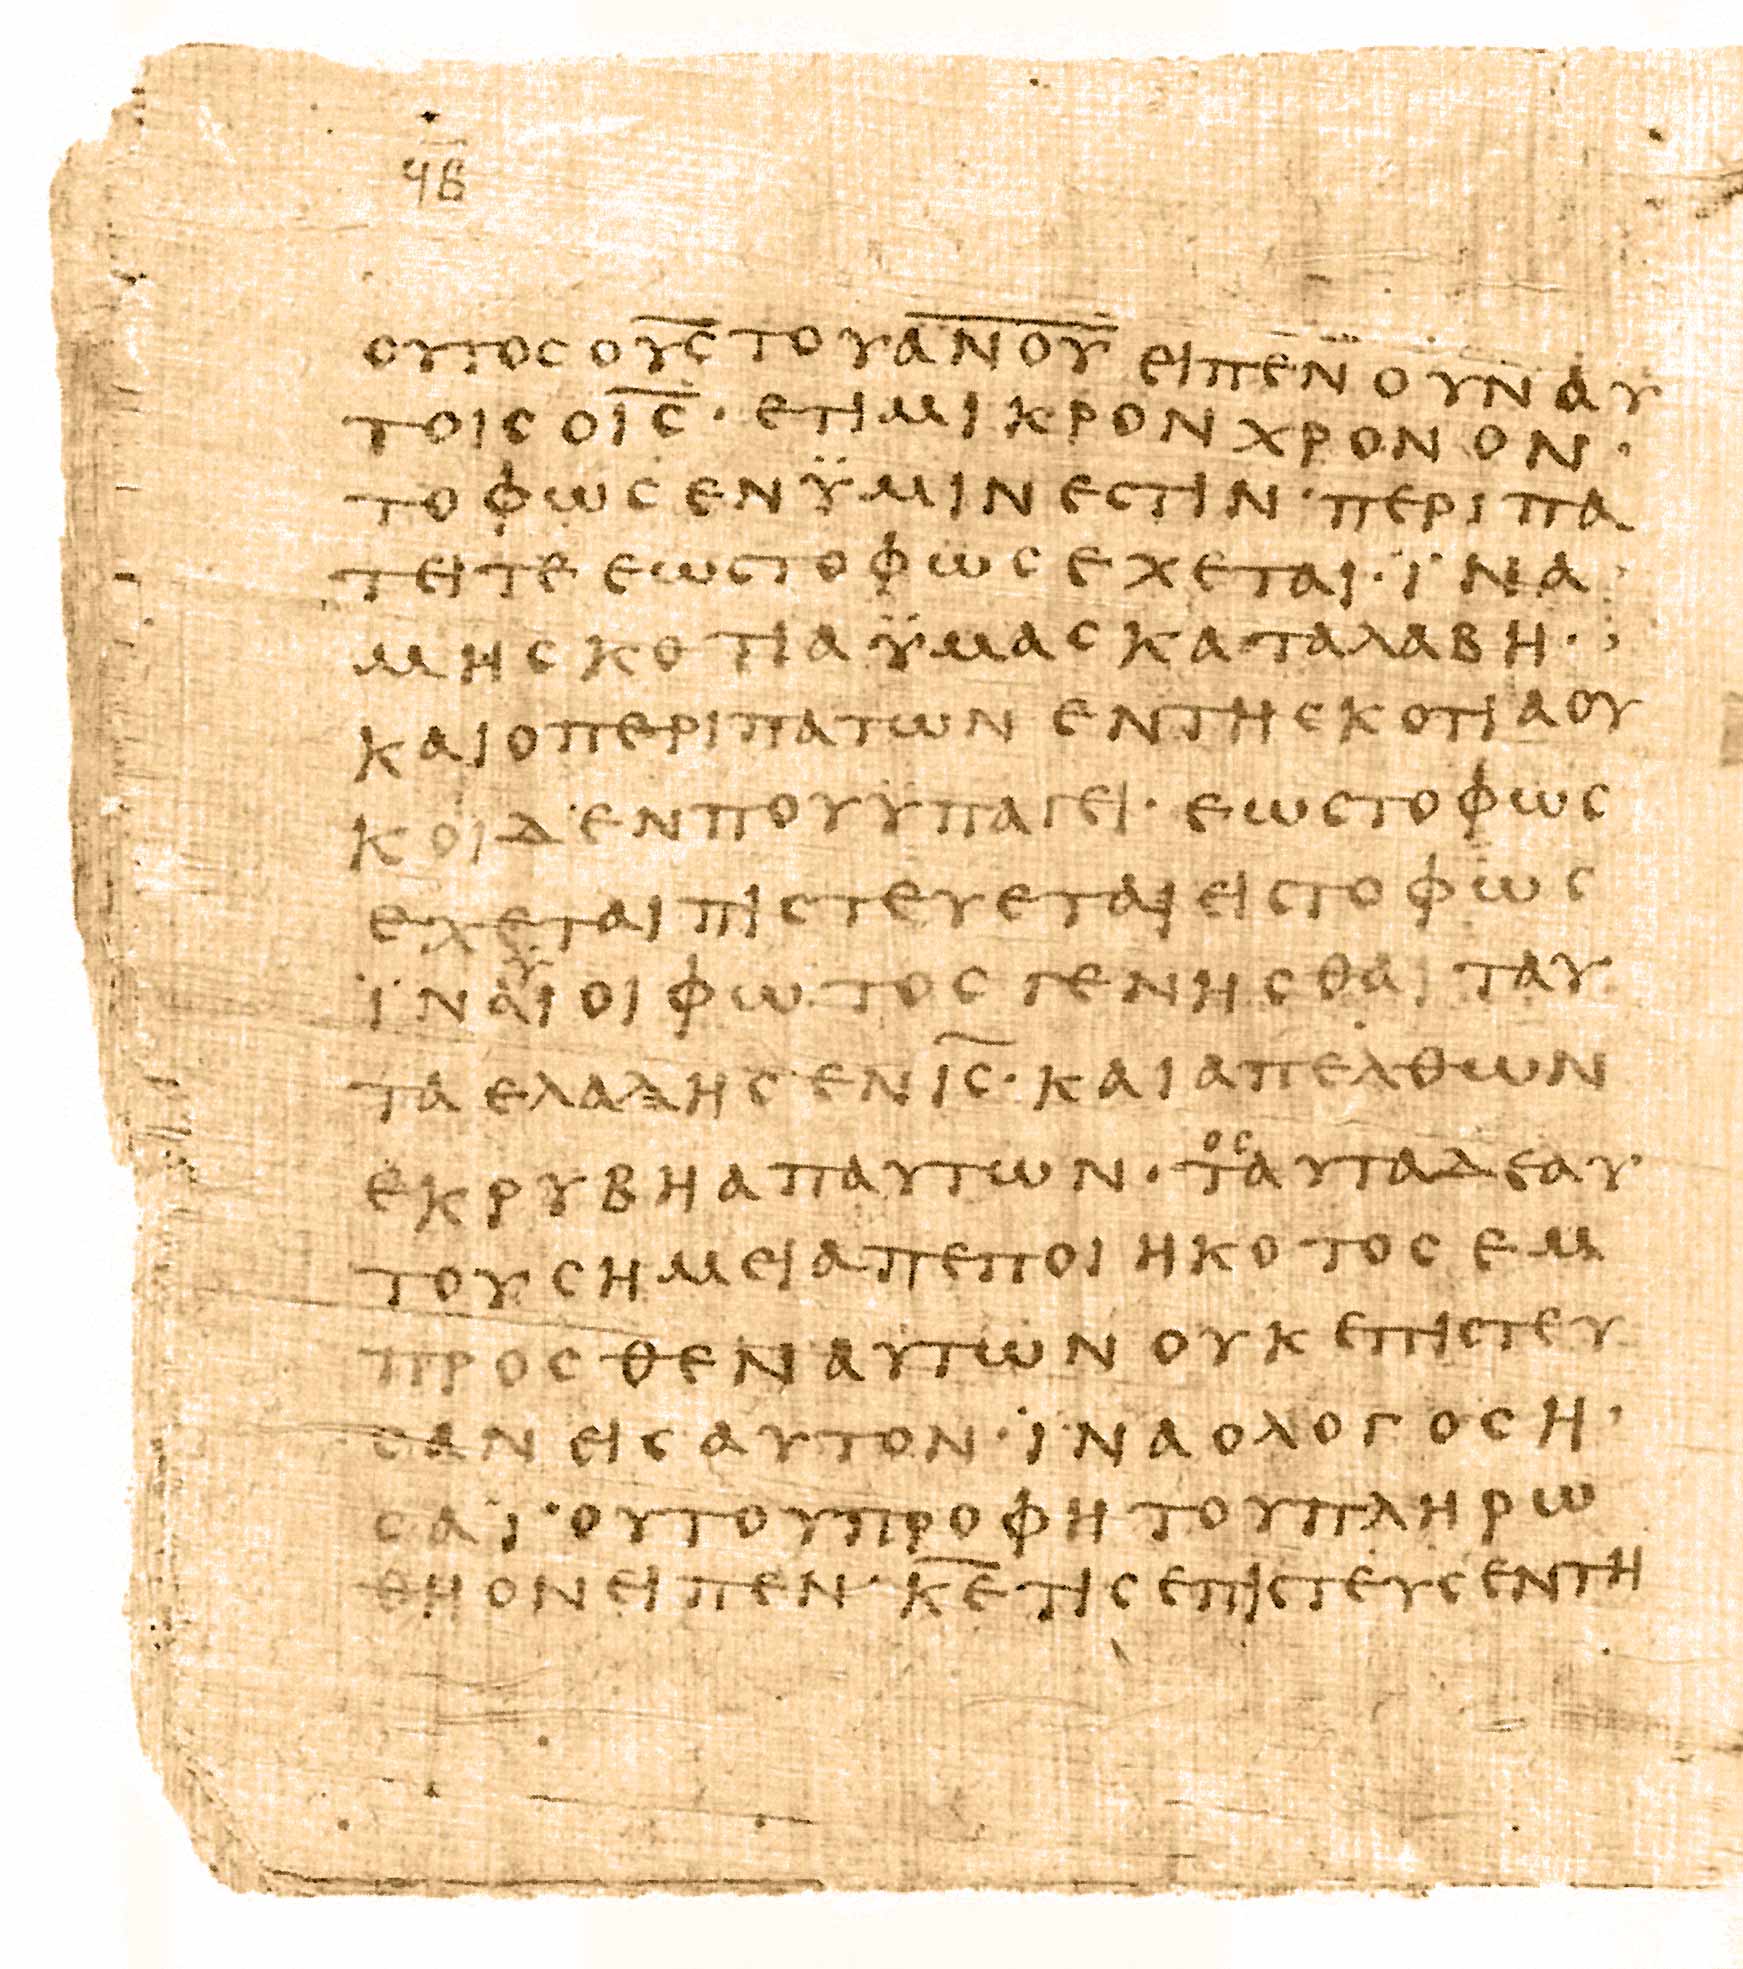 ϥβ
ουτοσ ο υ̅ς̅ του α̅ν̅ο̅υ̅ ειπεν ουν αυ
τοισ ο ι̅ς̅· ετι μικρον χρονον·
το φωσ εν ϋμιν εστιν· περιπα
τειτε εωσ το φωσ εχεται· ϊνα
μη σκοτια ϋμασ καταλαβη·
και ο περιπατων εν τη σκοτια ου
κ οιδεν που ϋπαγει· εωσ το φωσ
εχεται πιστευεται εισ το φωσ
ϊνα υιοι φωτοσ γενησθαι ταυ
τα ελαλησεν ι̅ς̅· και απελθων
εκρυβη απ αυτων· τοσαυτα δε αυ
του σημεια πεποιηκοτοσ εμ
προσθεν αυτων ουκ επιστευ
σαν εισ αυτον· ϊνα ο λογοσ η·
σαϊ·ου του προφητου πληρω
θη ον ειπεν· κ̅ε̅ τισ επιστευσεν τη